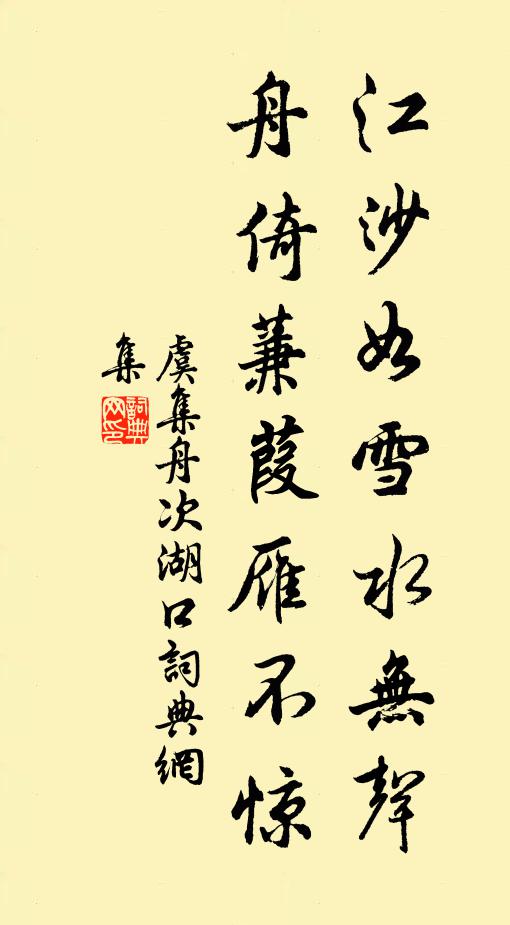 江沙如雪水無聲
舟倚蒹葭雁不惊
虞集舟次湖口詞典網
集
詞典網印